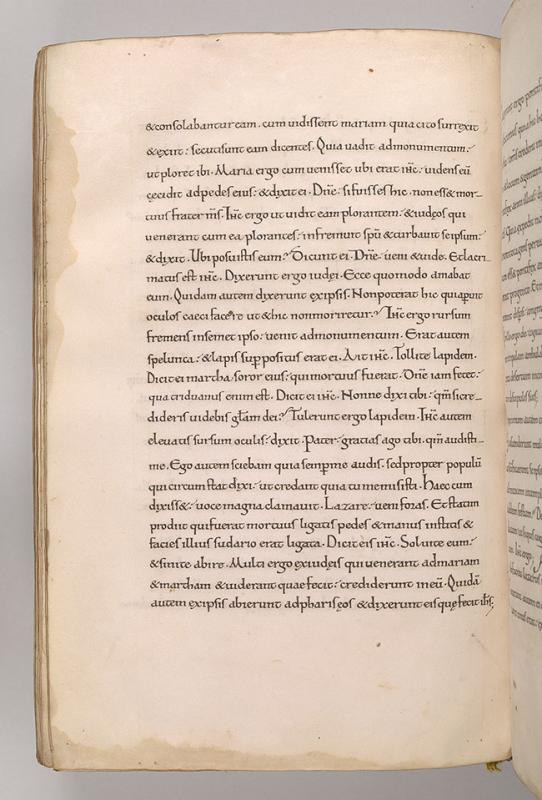 & consolabantur eam. cum uidissent mariam quia cito surrexit
& exiit: secuti sunt eam dicentes. Quia uadit ad monumentum:
ut ploret ibi. Maria ergo cum uenisset ubi erat ihc: uidens eū
cecidit ad pedes eius: & dixit ei. Dn̄e: si fuisses hic. non ess& mor-
tuus frater m̄s. Ihc ergo ut uidit eam plorantem: & iudęos qui
uenerant cum ea plorantes: infremuit spū & turbauit se ipsum:
& dixit. Ubi posuistis eum? Dicunt ei. Dn̄e: ueni & uide. Et lacri
matus est ihc. Dixerunt ergo iudęi. Ecce quomodo amabat
eum. Quidam autem dixerunt ex ipsis. Non poterat hic qui aperuit
oculos caeci facere ut & hic non moriretur? Ihc ergo rursum
fremens in semet ipso: uenit ad monumentum. Erat autem
spelunca: & lapis sup positus erat ei. Ait ihc. Tollite lapidem.
Dicit ei martha soror eius: qui mortuus fuerat. Dn̄e iam fetet:
quatriduanus enim est. Dicit ei ihc. Nonne dixi tibi: qm̄ si cre-
dideris uidebis glam dei? Tulerunt ergo lapidem. Ihc autem
eleuatis sursum oculis: dixit. Pater: gratias ago tibi. qm̄ audisti-
me. Ego autem sciebam quia semper me audis. sed propter populū
qui circumstat dixi: ut credant quia tu me misisti. Haec cum
dixiss&: uoce magna clamauit. Lazare: ueni foras. Et statim
prodiit qui fuerat mortuus ligatus pedes & manus institis &
facies illius sudario erat ligata. Dicit eis ihc. Soluite eum:
& sinite abire. Multi ergo ex iudeis qui uenerant ad mariam
& martham & uiderant quae fecit: crediderunt in eū. Quidā
autem ex ipsis abierunt ad phariseos & dixerunt eis quę fecit ihs;